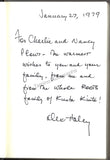 January 27, 1979
For Charlie and Nancy
Plows - The warmest
wishes to you and your
family, from me and
from the Whole Roots
family of Kunta Kinte!
Alex Haley